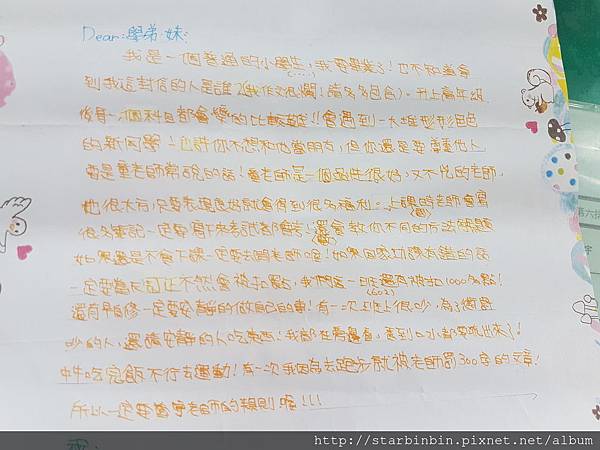 Dear:學弟.妹:
我是一個普通的小學生,我要畢業了!也不知道會
到我這封信的人是誰(我作文很爛!請多多包含)。升上高年級
後每一個科目都會變的比較難!!會遇到一大堆形形色色
的新同學!也許你不想和他當朋友,但你還是要尊重他人
這是童老師常說的話!童老師是一個個性很好,又不兇的老師
他很大方,只要表現良好就會得到很多福利。上課時老師會寫
很多筆記一定要寫下來考試都會考!還會教你不同的方法解題
如果還是不會下課一定要去問老師喔!如果回家功課有錯的話
一定要當天訂正不然會被扣點,我們這一班還有被扣1000多點!
(602)
還有早自修一定要安靜的做自己的事!有一次班上很吵,為了
吵的人,還請安靜的人吃東西!我都在旁邊看,甚到口水都要流出來了!
中午吃完飯不行去運動!有一次我因為去跑步就被老師罰300字的文章!
所以一定要遵守老師的規則喔!!!
http://starbinbin.pixnet.net/album